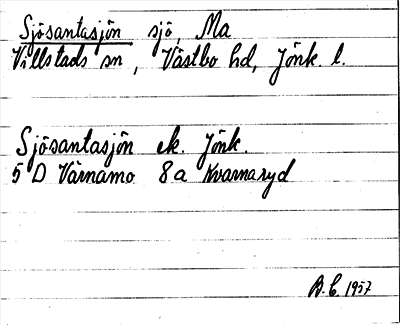 Sjösantasjön sjö, Ma
Villstads sn, Västbo hd, Jönk l.
Sjösantasjön ek. Jönk.
5 D Värnamo 8a Kvarnaryd
B.E. 1957